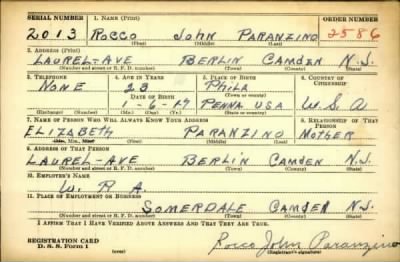 SERIAL NUMBER 1. NAME (Print) ORDER NUMBER
2013 ROCCO JOHN PARANZINO 2586
(First) (Middle) (Last)
2. ADDRESS (Print)
LAUREL-AVE BERLIN CAMDEN N.J.
(Number and street or R. F. D. number) (Town) (County) (State)
3. TELEPHONE 4. AGE IN YEARS 5. PLACE OF BIRTH 6. COUNTRY OF CITIZENSHIP
NONE 23 PHILA
DATE OF BIRTH (Town or county)
1-6-17 PENNA USA U.S.A
(Exchange) (Number) (Mo.) (Day) (Yr.) (State or country)
7. NAME OF PERSON WHO WILL ALWAYS KNOW YOUR ADDRESS 8. RELATIONSHIP OF THAT PERSON
ELIZABETH PARANZINO MOTHER
(Mr., Mrs., Miss) (First) (Middle) (Last)
9. ADDRESS OF THAT PERSON
LAUREL-AVE BERLIN CAMDEN N.J.
(Number and street or R. F. D. number) (Town) (County) (State)
10. EMPLOYER'S NAME
W. P. A.
11. PLACE OF EMPLOYMENT OR BUSINESS
SOMERDALE CAMDEN N.J.
(Number and street or R. F. D. number) (Town) (County) (State)
I AFFIRM THAT I HAVE VERIFIED ABOVE ANSWERS AND THAT THEY ARE TRUE.
REGISTRATION CARD
D. S. S. Form 1 (over) Rocco John Paranzino
(Registrant's signature)